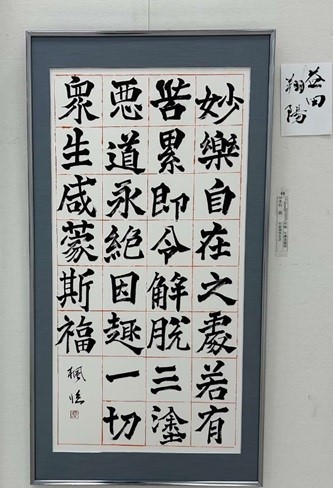 妙樂自在之處若有
苦累即令解脫三塗
悪道永絶因趣一切
衆生咸蒙斯福
楓
益田
翔陽